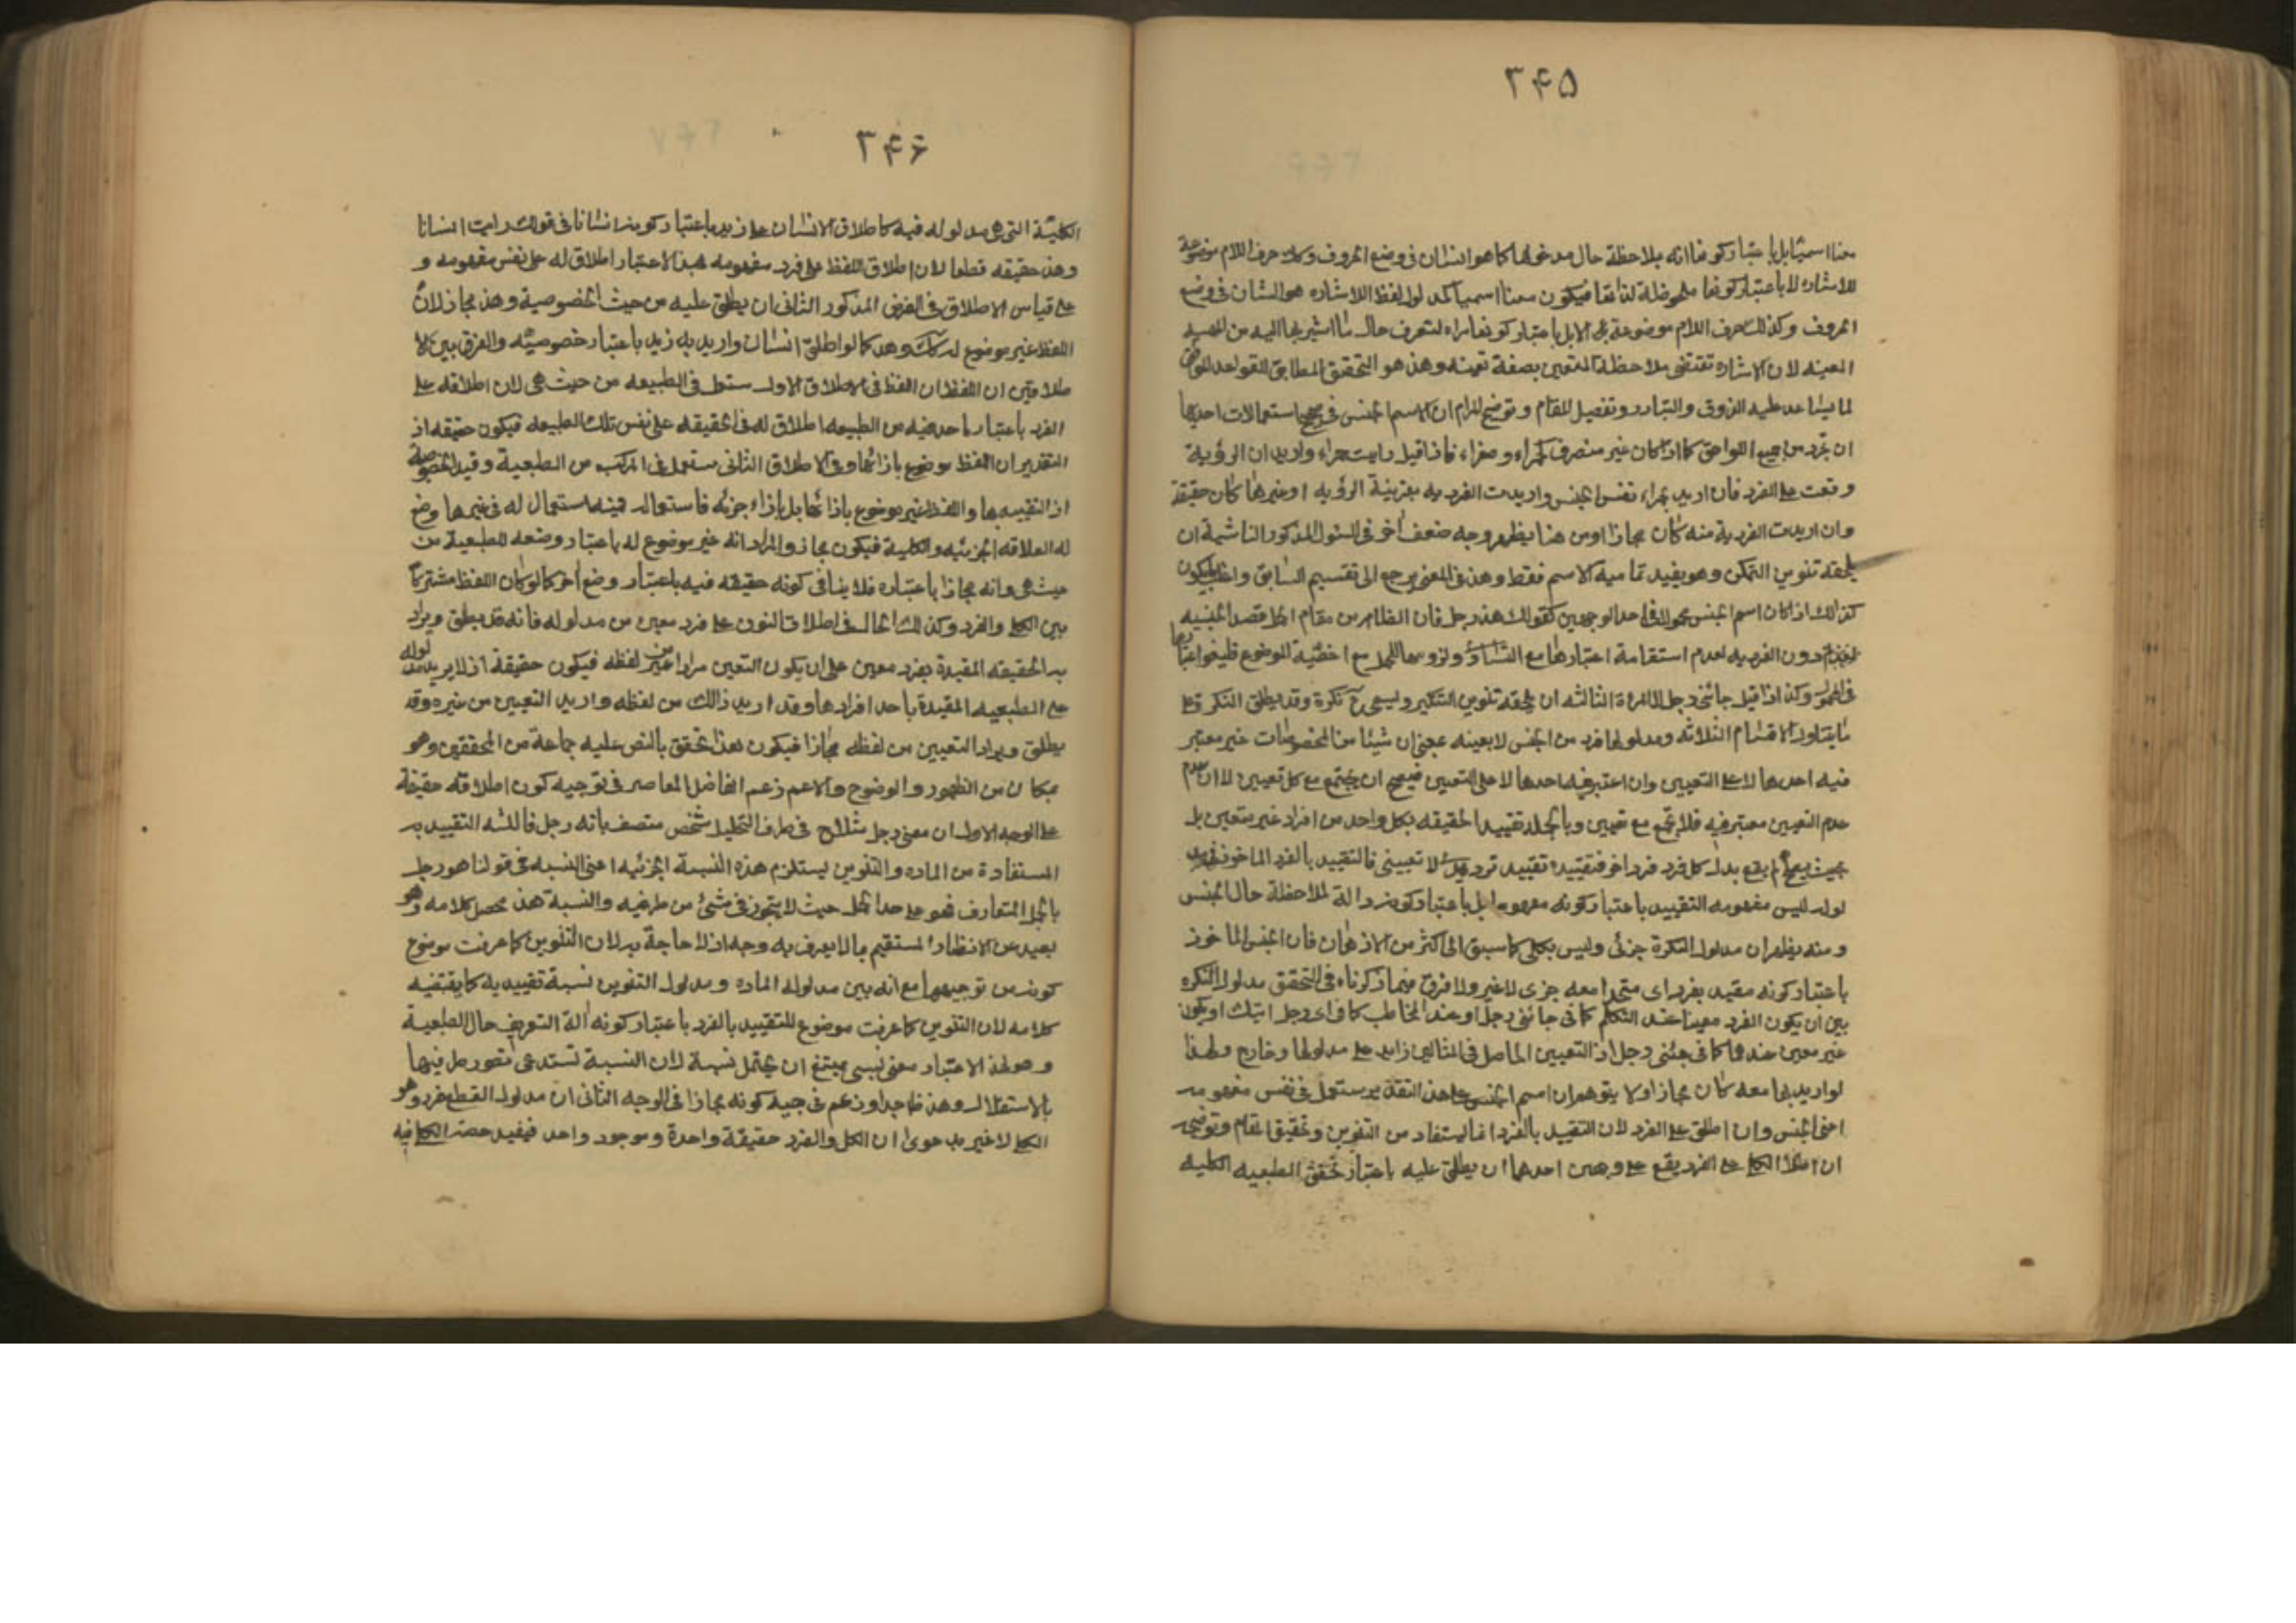 ۳۴۵
معنا اسميا بل باعتبار كونها الة بملاحظة حال مدخولها كما هو الشان في وضع الحروف وكك حرف اللام موضوعة
للاشاره لا باعتبار كونها ملحوظة لذاتها فيكون معنا اسميا كمدلول لفظ الاشاره هو الشان في وضع
الحروف وكذلك حرف اللام موضوعة لا بل باعتبار كونها مراة لتعرف حال ما اشير بها اليه من
المعينه لان الاشاره تقتضى ملاحظة المتعين بصفة تعينه وهذا هو التحقيق المطابق للقواعد الموافق
لما يساعد عليه الذوق والتبادر وتفصيل المقام وتوضيح المرام ان لاسم الجنس استعمالات احدها
ان يجرد من جميع اللواحق كما اذا كان غير منصرف كحمراء وصفراء فاذا قيل رايت حمراء واريد ان الرؤية
وقعت على الفرد فان اريد بحمراء نفس الجنس واريدت الفرديه بقرينة الرؤيه او غيرها كان حقيقة
وان اريدت الفردية منه كان مجازا ومن هنا يظهر وجه ضعف اخر في المذكور الثانية ان
يلحقه تنوين التمكن وهو يفيد تمامية الاسم فقط وهذا في المعنى يرجع الى تقسيم السابق واغلب ما يكون
كذلك اذا كان اسم الجنس محمولا في احد الوجهين كقولك هذا رجل فان الظاهر من مقام الحمل قصد الجنسيه
دون الفرديه لعدم استقامة اعتبارها مع التساوى ولزومها للحمل مع اخصية الموضوع فليغو اعتبارها
في المحمول وكذا اذا قيل جائنى رجل لا امراة الثالثه ان يلحقه تنوين التنكير ويسمى ح نكرة وقد يطلق النكرة على
ما يتناول الاقسام الثلاثه ومدلولها فرد من الجنس لا بعينه بمعنى ان شيئا من الخصوصيات غير معتبر
فيه احدها لا على التعيين وان اعتبر فيه احدها لا على التعيين فيصح ان يجتمع مع كل تعيين لا ان عدم
عدم التعيين معتبر فيه فلا يجتمع مع تعيين وبالجملة تقييد الحقيقه بكل واحد من افراد غير متعين بل
بحيث يصح ان يقع بدل كل فرد فرد اخر فتقييده تقييد ترديدى لا تعيينى فالتقييد بالفرد الماخوذ في
لوله ليس مفهومه التقييد باعتبار كونه مفهوما بل باعتبار كونه الة لملاحظة حال الجنس
ومنه يظهر ان مدلول النكرة جزئى وليس بكلى كما سبق الى اكثر من الاذهان فان الجنس الماخوذ
باعتبار كونه مقيد بفرد اى متحدا معه جزى لا غير ولا فرق فيما ذكرناه في التحقق مدلول النكره
بين ان يكون الفرد معينا عند المتكلم كما في جائنى رجل او عند المخاطب كما في اى رجل اتيك او يكون
غير معين عندهما كما في جئنى برجل اذ التعيين الحاصل في المثالين زايد على مدلولها وخارج ولهذا
لو اريد بها معه كان مجازا ولا يتوهم ان اسم الجنس على هذا التقدير مستعمل في نفس مفهومه
اعنى الجنس وان اطلق على الفرد لان التقييد بالفرد انما يستفاد من التنوين وتحقيق المقام وتوضيحه
ان اطلاق الكلى على الفرد يقع على وجهين احدهما ان يطلق عليه باعتبار تحقق الطبعيه الكليه
۳۴۶
الكليّة التى هى مدلوله فيه كاطلاق الانسان على زيد باعتبار كونه انسانا في قولك رايت انسانا
وهذا حقيقه قطعا لان اطلاق اللفظ على فرد مفهومه بهذا الاعتبار اطلاق له على نفس مفهومه و
على قياس الاطلاق في الفرض المذكور الثانى ان يطلق عليه من حيث الخصوصية وهذا مجاز لان
اللفظ غير موضوع له كك وهذا كما لو اطلق انسان واريد به زيد باعتبار خصوصيته والفرق بين الا
طلاقين ان اللفظ ان اللفظ في الاطلاق الاول مستعمل في الطبيعه من حيث هى لان اطلاقه على
الفرد باعتبار ما حد فيه من الطبيعه اطلاق له في الحقيقه على نفس تلك الطبيعه فيكون حقيقه اذ
التقدير ان اللفظ موضوع بازائها وفي الاطلاق الثانى مستعمل في المركب من الطبعية وقيد الخصوصية
اذ التقييد بها واللفظ غير موضوع بازائها بل بازاء جزئه فاستعماله فيه استعمال له في غير ما وضع
له لعلاقه الجزئيه والكلية فيكون مجاز والمراد انه غير موضوع له باعتبار وضعه للطبعية من
حيث هى وانه مجازا باعتباره فلا ينافى كونه حقيقه فيه باعتبار وضع اخر كما لو كان اللفظ مشتركا
بين الكلى والفرد وكذلك الحال في اطلاق المنون على فرد معين من مدلوله فانه قد يطلق ويراد
به الحقيقه المقيدة بفرد معين على ان يكون التعين مرادا من غير لفظه فيكون حقيقة اذ لا يريد مدلوله
على الطبعيه المقيدة باحد افرادها وقد اريد ذالك من لفظه واريد التعيين من غيره وقد
يطلق ويراد التعيين من لفظه مجازا فيكون بهذا تحقق بالنص عليه جماعة من المحققين وهو
بمكان من الظهور والوضوح والاعم زعم الفاضل المعاصر في توجيه كون اطلاقه حقيقة
على الوجه الاول ان معنى رجل مثلا ح في طرف التحليل شخص متصف بانه رجل فالنسبه التقييديه
المستفادة من الماده والتنوين يستلزم هذه النسبة الجزئيه اعنى النسبه في قولنا هو رجل
بالحمل المتعارف فهو على حد الحمل حيث لا يتجوز في شئ من طرفيه والنسبة هذا محصل كلامه وهو
بعيد عن الانظار المستقيم بما لا يعرف به وجه اذ لا حاجة به لان التنوين كما عرفت موضوع
كونه من توجيهها مع انه بين مدلوله الماده ومدلول التنوين نسبة تقييديه كما يقتضيه
كلامه لان التنوين كما عرفت موضوع للتقييد بالفرد باعتبار كونه الة التعريف حال الطبعية
وهو بهذا الاعتبار معنى نسبى يمتنع ان يحتمل نسبة لان النسبة تستدعى تصور طرفيها
بالاستقلال وهذا ظ جدا وزعم في جيه كونه مجازا في الوجه الثانى ان مدلول اللفظ فرد وهو
الكلى لا غير بدعوى ان الكل والفرد حقيقة واحدة وموجود واحد فيفيد حصر الكلى فيه